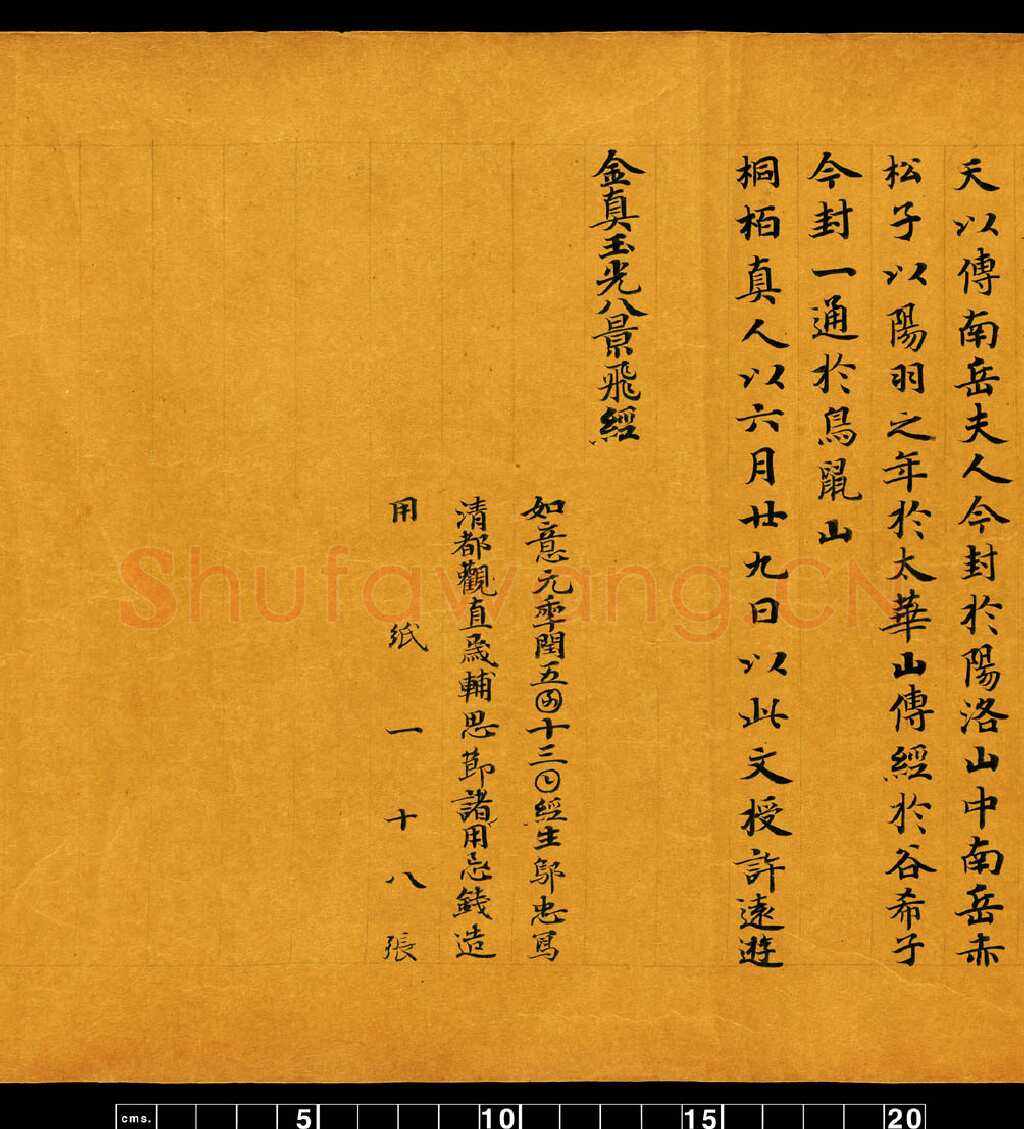 天以傳南岳夫人今封於陽洛山中南岳赤
松子以陽羽之年於太華山傳經於谷希子
今封一通於鳥鼠山
桐栢真人以六月廿九日以此文授許遠遊
金真玉光八景飛經
如意元秊閏五𠥱十三𡆠經生鄔忠寫
清都觀直歲輔思節諸用忌錢造
用紙一十八張
Shufawang.CN
cms. 5 10 15 20